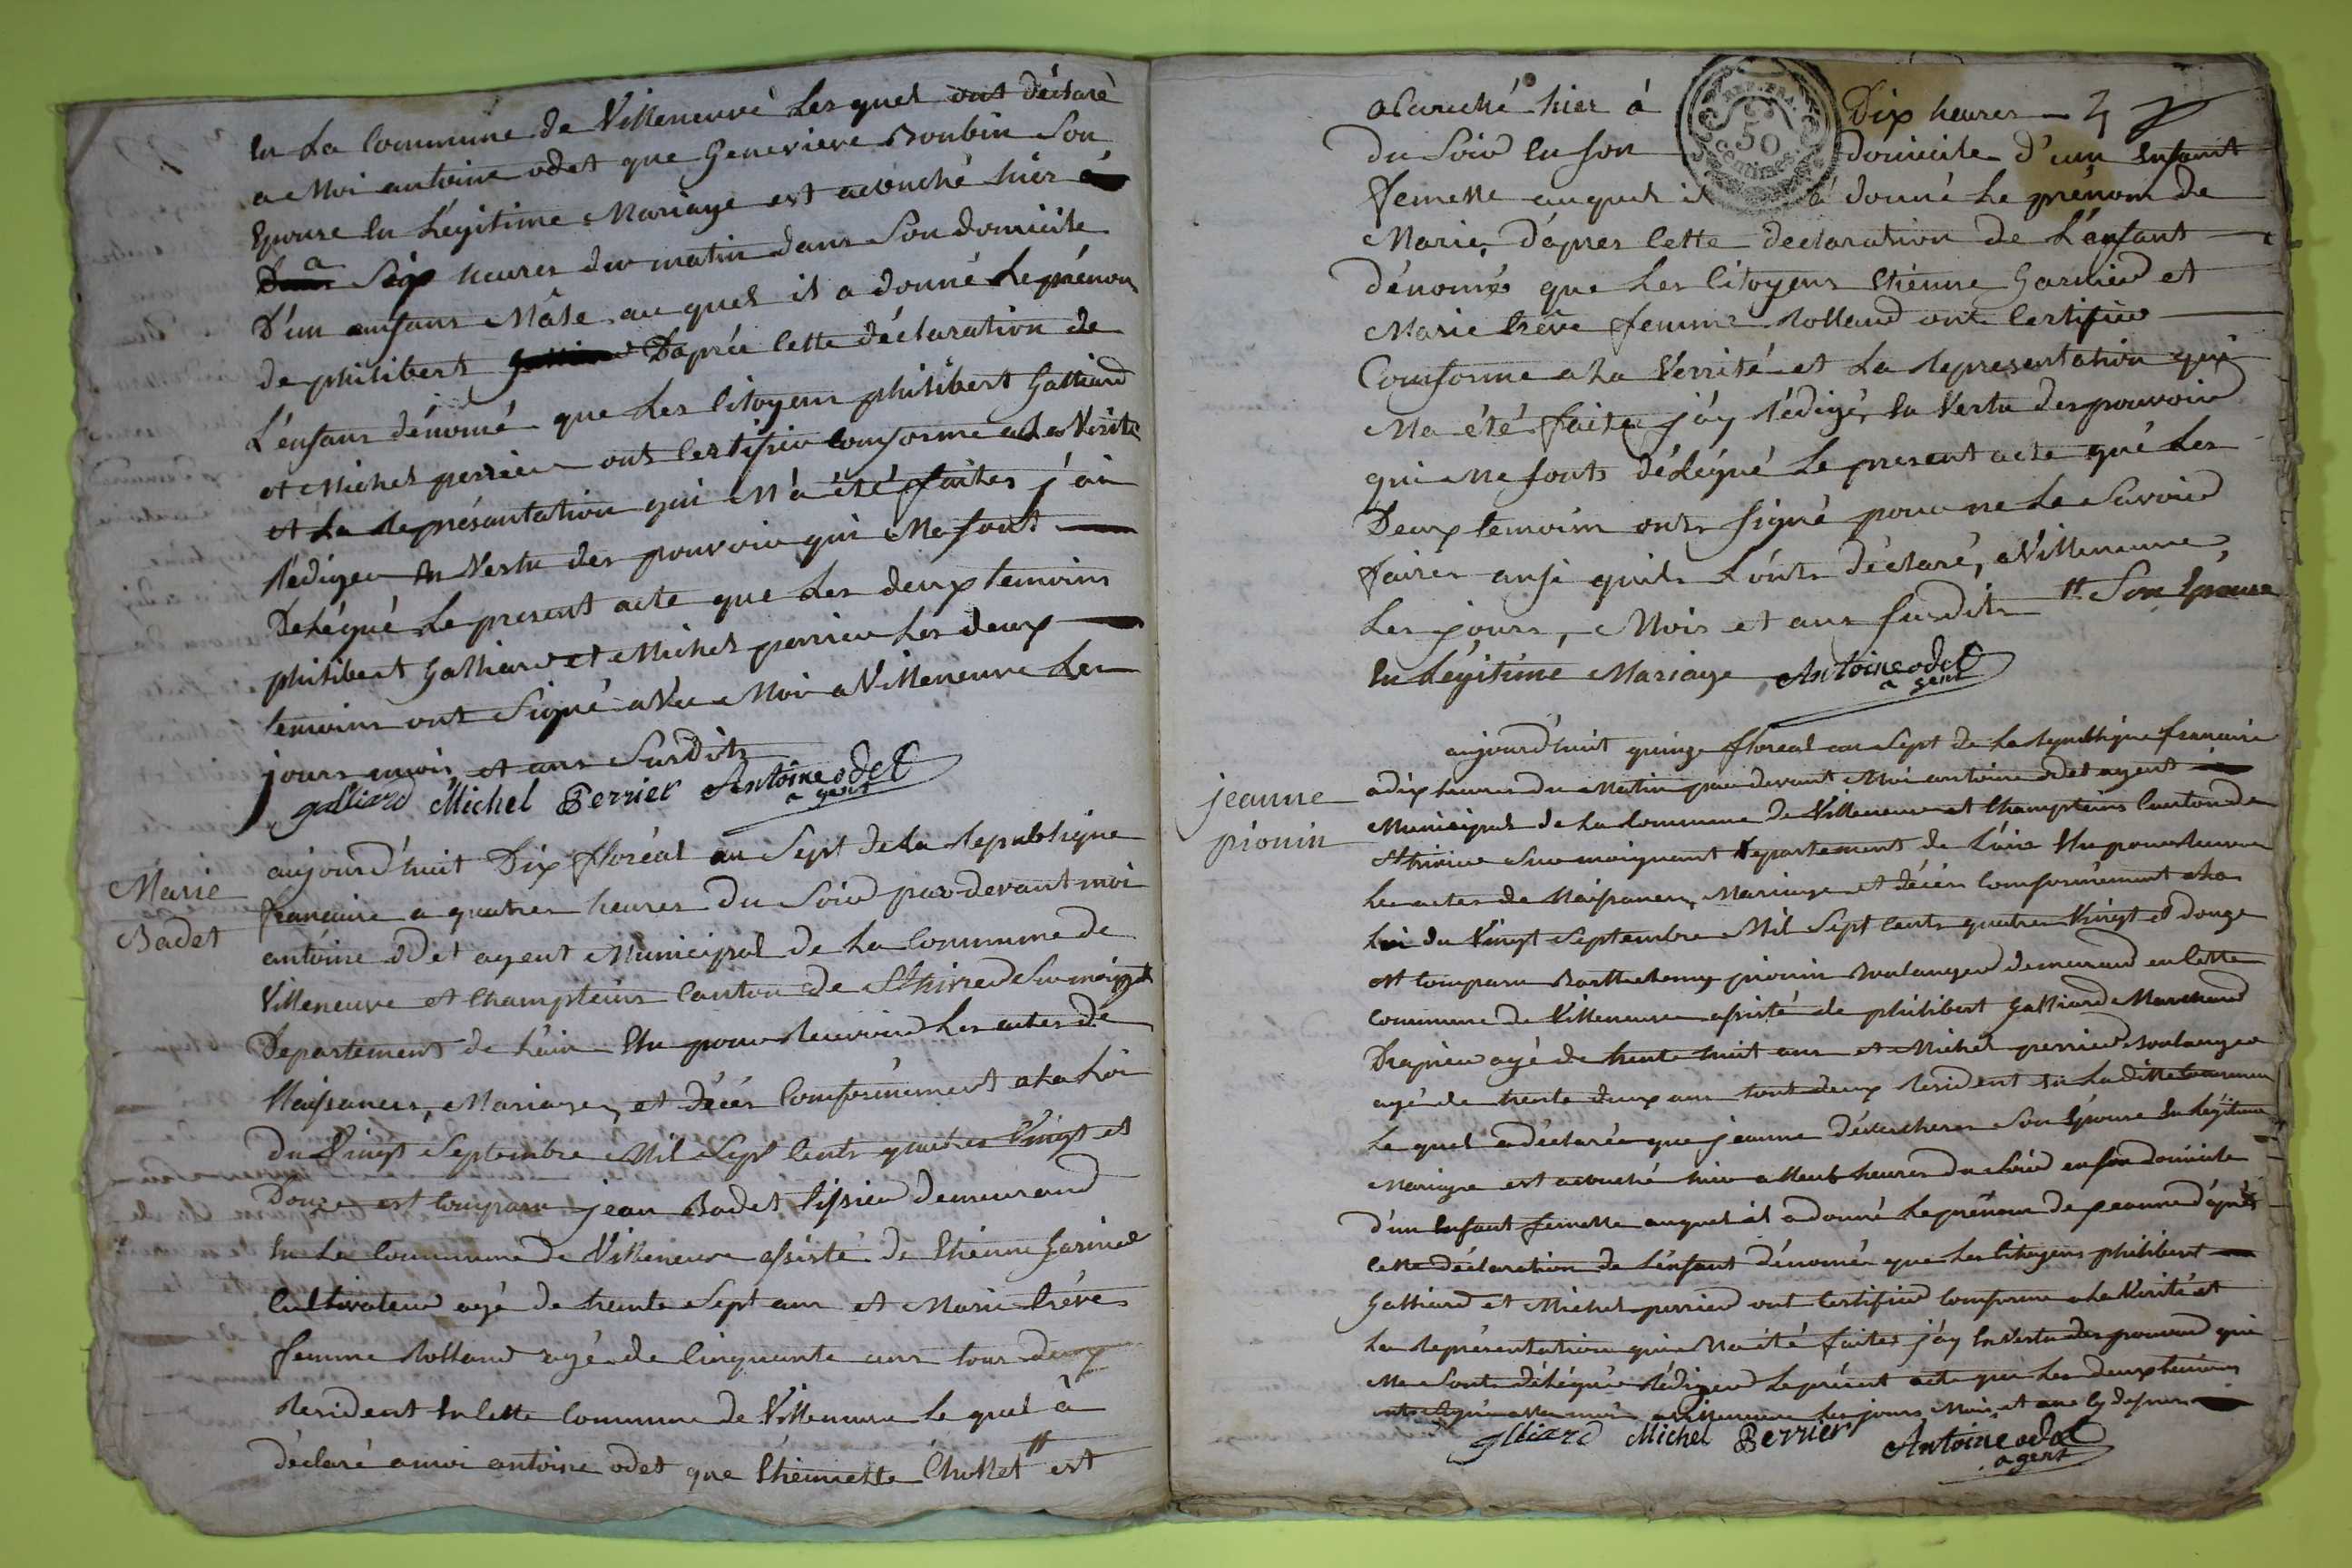 en La Commune de Villeneuve Les quel ont déclaré
a Moi antoine odet que Genevieve Bonbin Son
Epouse en Légitime Mariage est acouché hier á
a Sep heures du matin dans Son domicile
D'un enfans Mâle au quel il a donné Le prénom
de philibert D'aprés Cette déclaration de
L'enfans dénomé que Les Citoyens philibert Galliard
et Michel perrier ont Certifier Conforme a La Vérité
et La Représantation qui M'a été faites j'ai
Rédiger en Vertu des pouvoir qui Me sont
Délégué Le present acte que Les deux temoins
philibert Galliard et Michel perrier Les deux
temoins ont Signé aVec Moi a Villeneuve Les
jours mois et ans Susdits
galliard Michel Perrier Antoine odet
agent
Marie
Badet
aujourd'huit Dix floréal an Sept de La Republique
francaise a quatres heures du Soir par devant moi
antoine odet agent Municipal de La Commune de
Villeneuve et Champteins Canton de St hivier Sur moignt
Departement de L'ain Elu pour Recevoir Les actes de
Naissances, Mariages, et décés Conformément a La Loi
du Vingt Septembre Mil Sept Cents quatres Vingt et
Douze est Comparu jean Badet tissier demeurand
en La Commune de Villeneuve assisté de Etienne Garnied
Cultivateur agé de trente Sept ans et Marie Créve
femme Rolland agé de Cinquante ans tous deux
Resident en Cette Commune de Villeneuve Le quel à
déclaré a moi antoine odet que Etiennette Chollet # est
REP. FRA.
50
centimes
acouché hier á Dix heures
du Soir en Son domicile d'un Enfant
femelle auquel il a donné Le prénom de
Marie, d'apres Cette declaration de L'enfant
dénomé que Les Citoyens Etienne Garnier et
Marie Créve femme Rolland ont Certifier
Conforme a La Verrité et La Representation qui
Ma été faite j'ay Rédigé, en Vertu des pouvoir
qui Me sonts délégué Le present acte qué Les
Deux temoins onts signé pour ne Le Savoir
faires ansi quils L'onts déclaré, a Villeneuve,
Les jours, Mois et ans susdits # Son Epouse
en Légitime Mariage Antoine odet
agent
jeanne
pionin
aujourd'huit quinze floréal an Sept de La Republique francaise
a dix heures du Matin par devant Moi antoine odet agent
Municipal de La Commune de Villeneuve et Champteins Canton de
St hivier Sur moignant Departement de L'ain Elu pour Recevoir
Les actes de Naissances, Mariages et décés Conformément a La
Loi du Vingt Septembre Mil Sept Cents quatres Vingt et douze
est Comparu Barthelemy pionin Boulanger demeurand en Cette
Commune de Villeneuve assisté de philibert Galliard Marchand
Drapier agé de trente huit ans et Michel perrier Boulanger
agé de trente deux ans tout deux Resident en La ditte Commune
Le quel a déclarée que jeanne Son Epouse en Légitime
Mariage est acouché hier a Neuf heures du Soir en Son domicile
d'un Enfant femelle auquel il a donné Le prénom de jeanne d'aprés
Cette déclaration de L'enfant dénomé que Les Citoyens philibert
Galliard et Michel perrier ont Certifier Conforme a La Vérité et
La Représentation qui Ma été faites j'ay en Vertu des pouvoir qui
Me Sonts délégué Rédiger Le présent acte que Les deux temoins
onts Signé avec moi a Villeneuve Les jours Mois et ans Cy desus
galliard Michel Perrier Antoine odet
agent